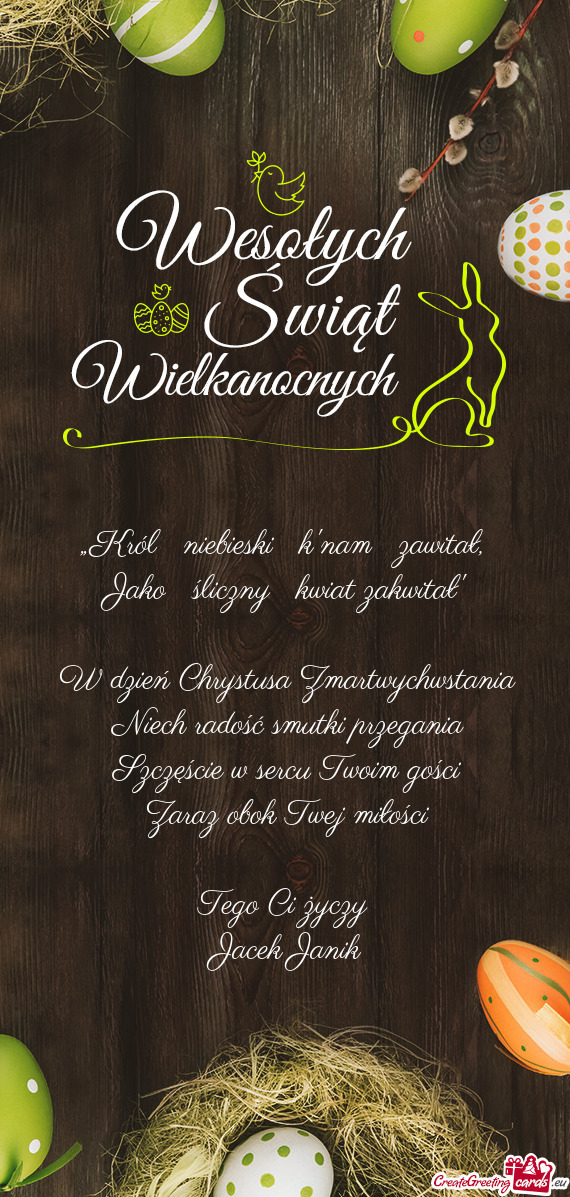 Wesołych
Świąt
Wielkanocnych
„Król niebieski k'nam zawitał,
Jako śliczny kwiat zakwitał"
W dzień Chrystusa Zmartwychwstania
Niech radość smutki przegania
Szczęście w sercu Twoim gości
Zaraz obok Twej miłości
Tego Ci życzy
Jacek Janik
CreateGreetingcards.eu